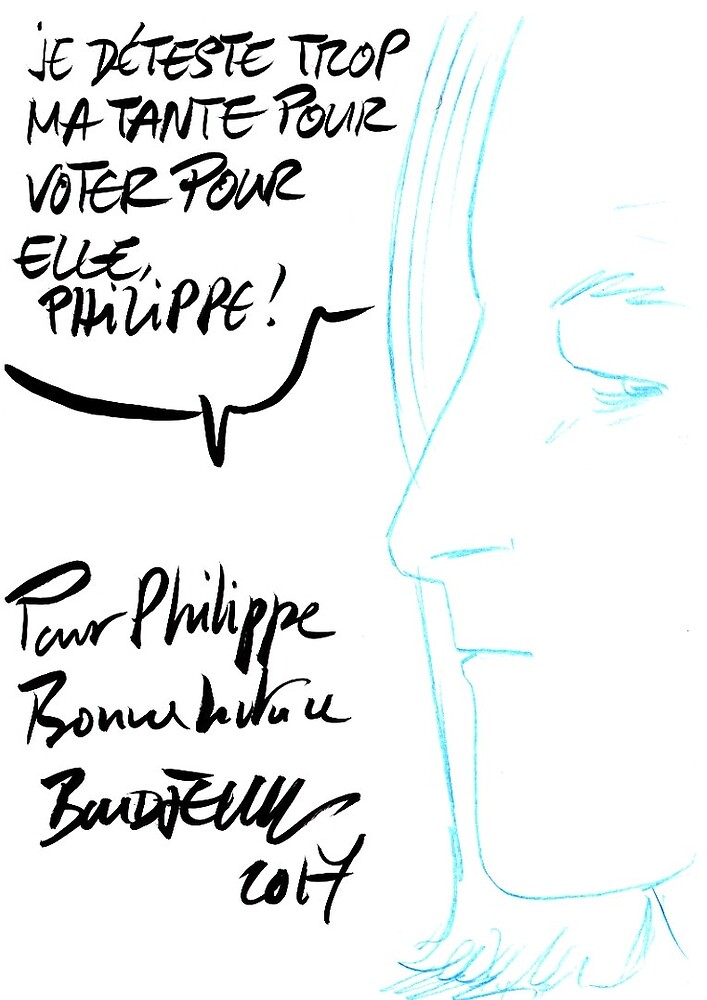 JE DÉTESTE TROP
MA TANTE POUR
VOTER POUR
ELLE,
PHILIPPE!
Pour Philippe
Bonne lecture
BOUDJELLAL
2017